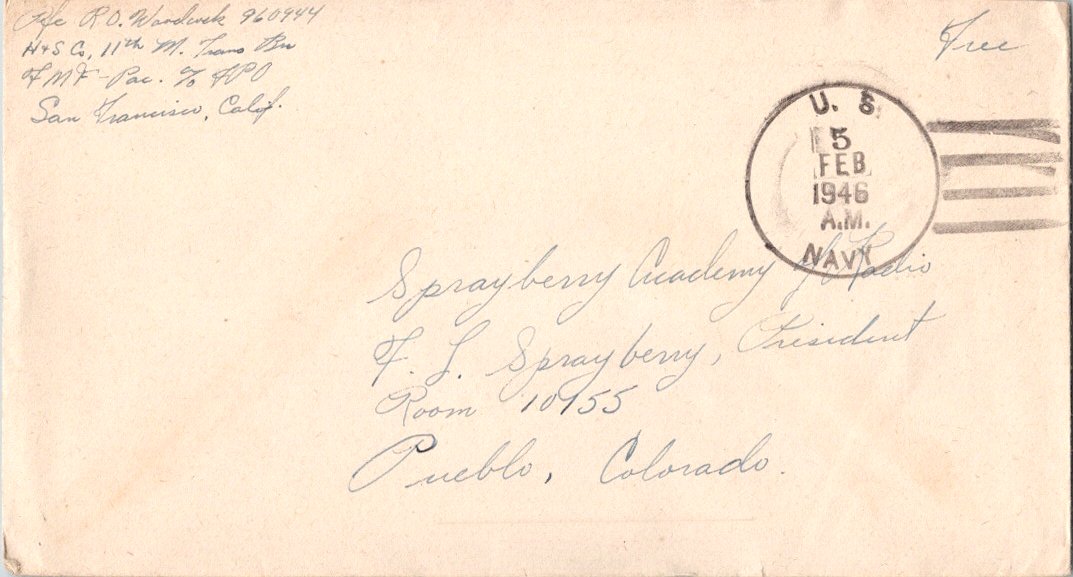 Pfc R.O. Woodwick 960944
H+S Co, 11th M. Trans Bn
FMF-Pac. % FPO
San Francisco, Calif.
Free
U. S.
5
FEB
1946
A.M.
NAVY
Sprayberry Academy of Radio
F. L. Sprayberry, President
Room 10155
Pueblo, Colorado.